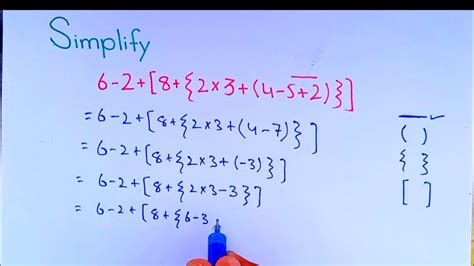 Simplify
6-2+[8+{2×3+(4-5+2̅)}]
=6-2+[8+{2×3+(4-7)}]
=6-2+[8+{2×3+(-3)}]
=6-2+[8+{2×3-3}]
=6-2+[8+{6-3
‾ ✓
( )
{ }
[ ]